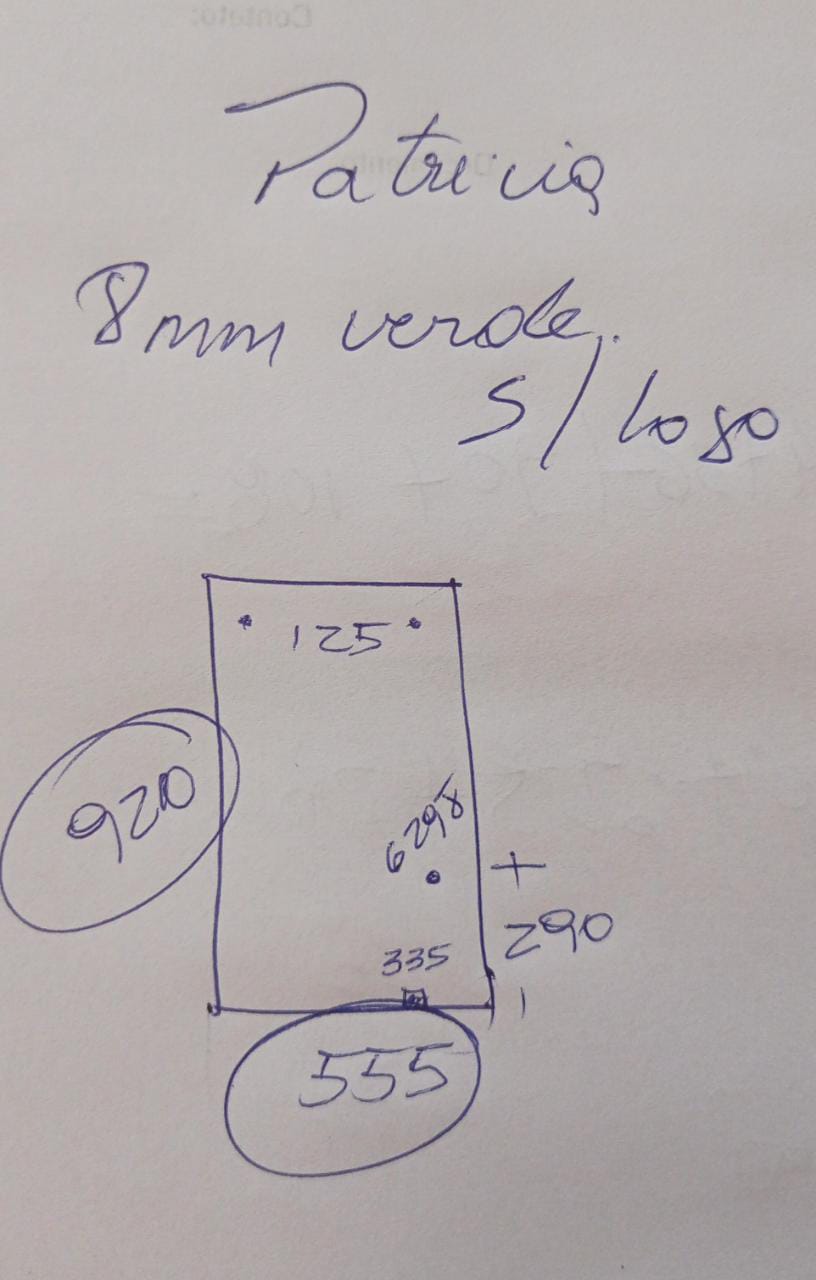 Patricia
8mm verde.
s/ logo
125
920
6298
+
290
335
555